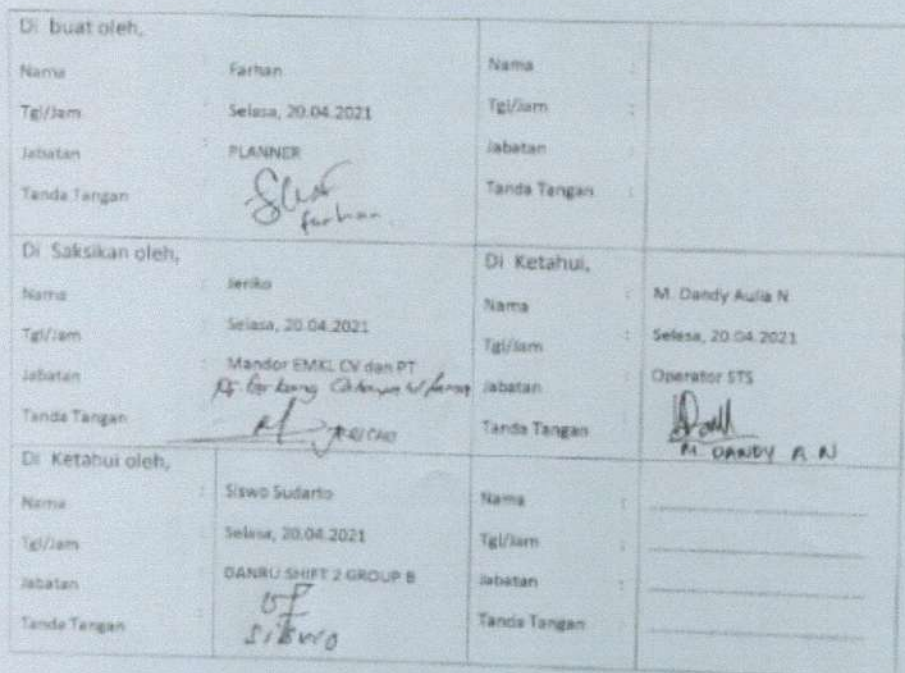 Di buat oleh,
Nama : Farhan
Tgl/Jam : Selasa, 20.04.2021
Jabatan : PLANNER
Tanda Tangan
farhan
Nama :
Tgl/Jam :
Jabatan :
Tanda Tangan :
Di Saksikan oleh,
Nama : Jeriko
Tgl/Jam : Selasa, 20.04.2021
Jabatan : Mandor EMKL CV dan PT
PT
Tanda Tangan :
Di Ketahui,
Nama : M. Dandy Aulia N
Tgl/Jam : Selasa, 20.04.2021
Jabatan : Operator STS
Tanda Tangan
M DANDY A N
Di Ketahui oleh,
Nama : Siswo Sudarto
Tgl/Jam : Selasa, 20.04.2021
Jabatan : DANRU SHIFT 2 GROUP B
Tanda Tangan :
SISWO
Nama :
Tgl/Jam :
Jabatan :
Tanda Tangan :